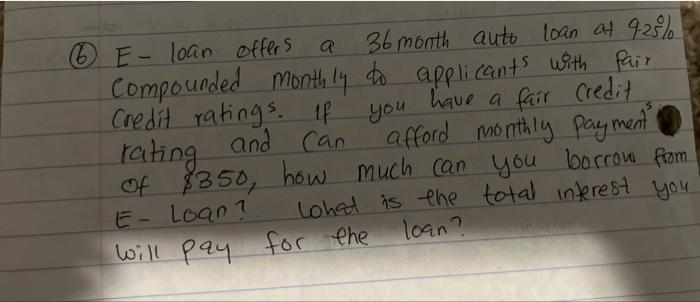 ⑥ E - loan offers a 36 month auto loan at 9.25%
Compounded monthly to applicants with fair
Credit ratings. If you have a fair credit
rating and can afford monthly payments
of $350, how much can you borrow from
E - Loan? What is the total interest you
will pay for the loan?